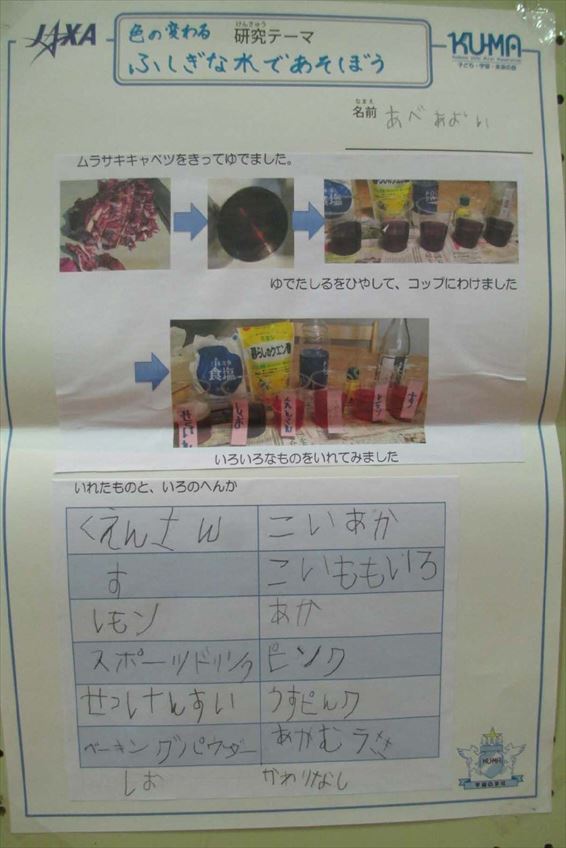 JAXA
色の変わる
けんきゅう
研究テーマ
ふしぎな水であそぼう
KU-MA
子ども・宇宙・未来の会
なまえ
名前 あべ あおい
ムラサキキャベツをきってゆでました。
ゆでたしるをひやして、コップにわけました
食塩
暮らしのクエン酸
しお
レモン
す
いろいろなものをいれてみました
いれたものと、いろのへんか
くえんさん こいあか
す こいももいろ
レモン あか
スポーツドリンク ピンク
せっけんすい うすピンク
ベーキングパウダー あかむラさき
しお かわりなし
KU-MA
宇宙の学校